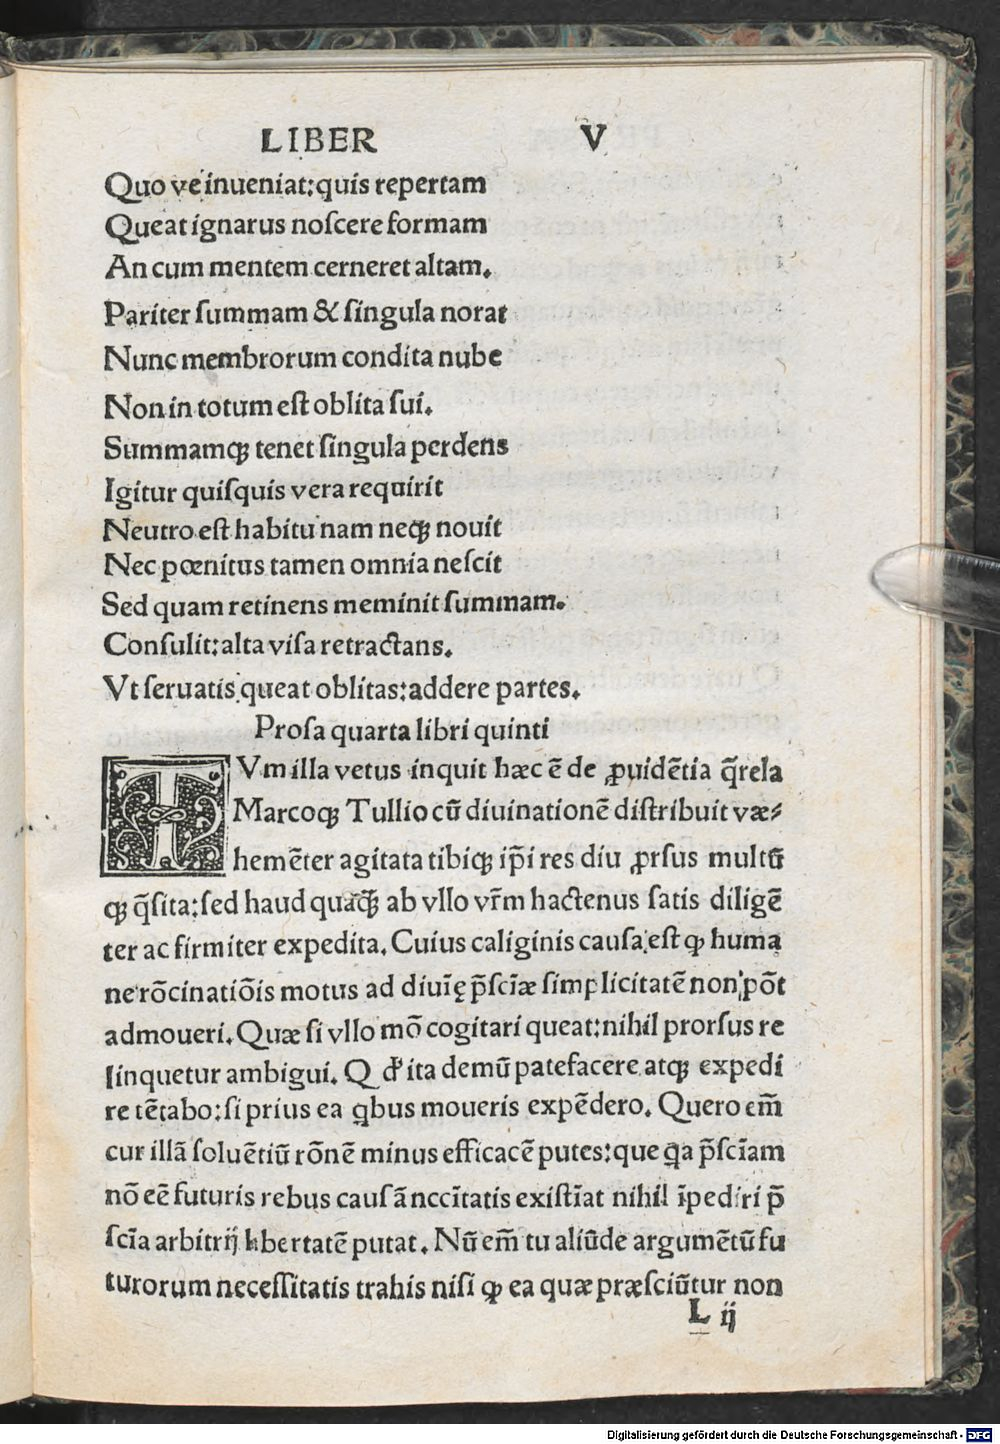 LIBER V
Quo ve inueniat:quis repertam
Queat ignarus noſcere formam
An cum mentem cerneret altam.
Pariter ſummam & ſingula norat
Nunc membrorum condita nube
Non in totum eſt oblita ſui.
Summamqꝫ tenet ſingula perdens
Igitur quiſquis vera requirit
Neutro eſt habitu nam neqꝫ nouit
Nec pœnitus tamen omnia neſcit
Sed quam retinens meminit ſummam.
Conſulit:alta viſa retractans.
Vt ſeruatis queat oblitas:addere partes.
Proſa quarta libri quinti
TVm illa vetus inquit hæc ē de ꝓuidētia q̄rela
Marcoqꝫ Tullio cū diuinationē diſtribuit væ⸗
hemēter agitata tibiqꝫ ip̄i res diu ꝓrſus multū
qꝫ q̄ſita:ſed haud quāqꝫ ab vllo vr̄m hactenus ſatis diligē
ter ac firmiter expedita. Cuius caliginis cauſa eſt ꝙ huma
ne rōcinatiōis motus ad diuīę p̄ſciæ ſimplicitatē non pōt
admoueri. Quæ ſi vllo mō cogitari queat:nihil prorſus re
linquetur ambigui. Q đ ita demū patefacere atqꝫ expedi
re tētabo:ſi prius ea ꝗbus moueris expēdero. Quero em̄
cur illā ſoluētiū rōnē minus efficacē putes:que ꝗa p̄ſcīam
nō eē futuris rebus cauſā nccītatis exiſtīat nihil īpediri p̄
ſcīa arbitrij libertatē putat. Nū em̄ tu aliūde argumētū fu
turorum neceſſitatis trahis niſi ꝙ ea quæ præſciūtur non
L ij
Digitalisierung gefördert durch die Deutsche Forschungsgemeinschaft - DFG